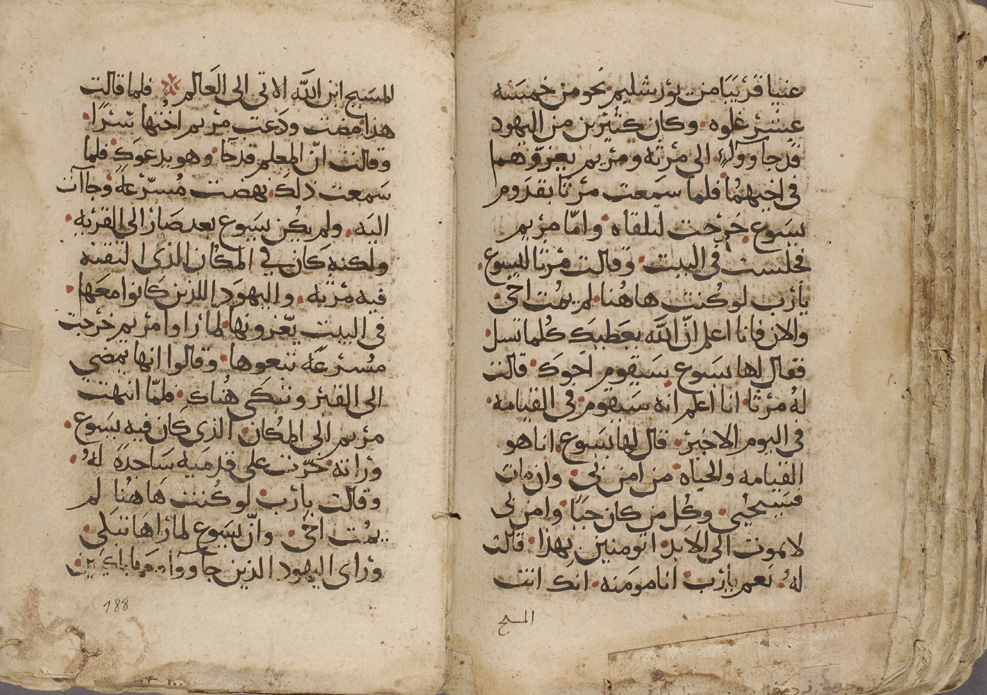 عنيا قريبا من يورشليم نحو من خمسه
عشر غلوه وكان كثيرين من اليهود
قد جاووا الى مرثه ومريم يعزوهما
في اخيهما فلما سمعت مرثا بقدوم
يسوع خرجت لتلقاه واما مريم
فجلست في البيت وقالت مرثا ليسوع
يا رب لو كنت هاهنا لم يمت اخي
والان فانا اعلم ان الله يعطيك كلما تسل
فقال لها يسوع سيقوم اخوك قالت
له مرثا انا اعلم انه سيقوم في القيامه
في اليوم الاخير قال لها يسوع انا هو
القيامه والحياه من امن بي وان مات
فسيحيى وكل من كان حيا وامن بي
لا يموت الى الابد اتومنين بهذا قالت
له نعم يا رب انا مومنه انك انت
المسيح
المسيح ابن الله الاتي الى العالم فلما قالت
هدا مضت ودعت مريم اختها سرا
وقالت ان المعلم قد جا وهو يدعوك فلما
سمعت دلك نهضت مسرعة وجاات
اليه ولم يكن يسوع بعد صار الى القريه
ولكنه كان في المكان الذي التقته
فيه مرثه واليهود اللذين كانوا معها
في البيت يعزونها لما راوا مريم خرجت
مسرعه تبعوها وقالوا انها تمضي
الى القبر وتبكي هناك فلما انتهت
مريم الى المكان الذي كان فيه يسوع
وراته خرت على قدميه ساجدة له
وقالت يا رب لو كنت هاهنا لم
يمت اخي وان يسوع لما راها تبكي
وراى اليهود الذين جاووا معها باكيين
188